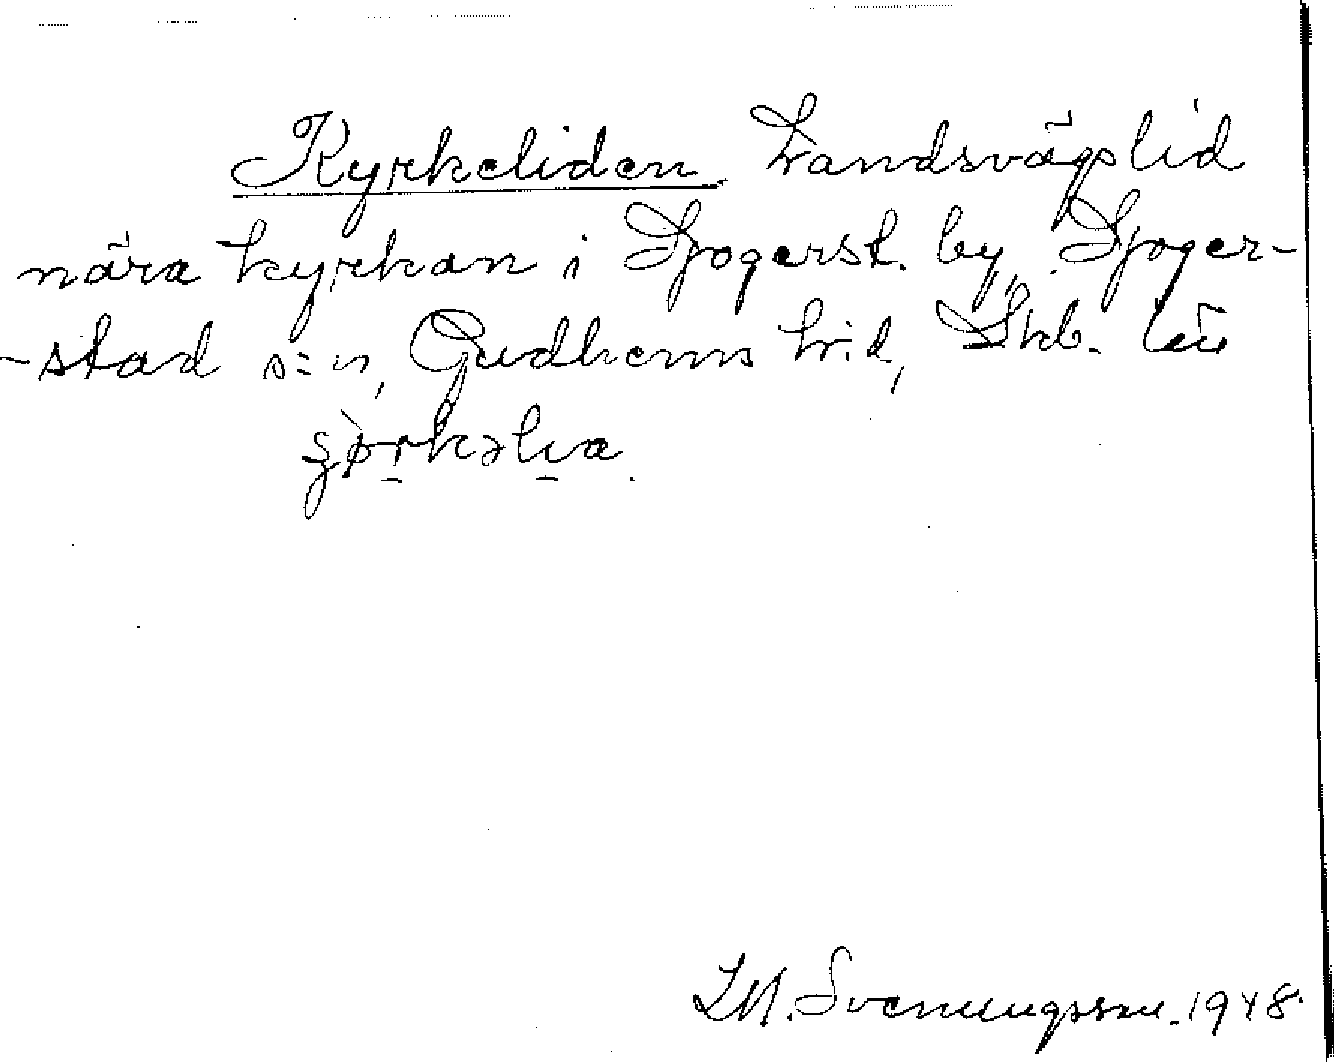 Kyrkeliden. Landsvägslid
nära kyrkan i Sjogerst. by, Sjoger-
-stad s:n, Gudhems h:d, Skb. län
M. Svenungsson. 1948.